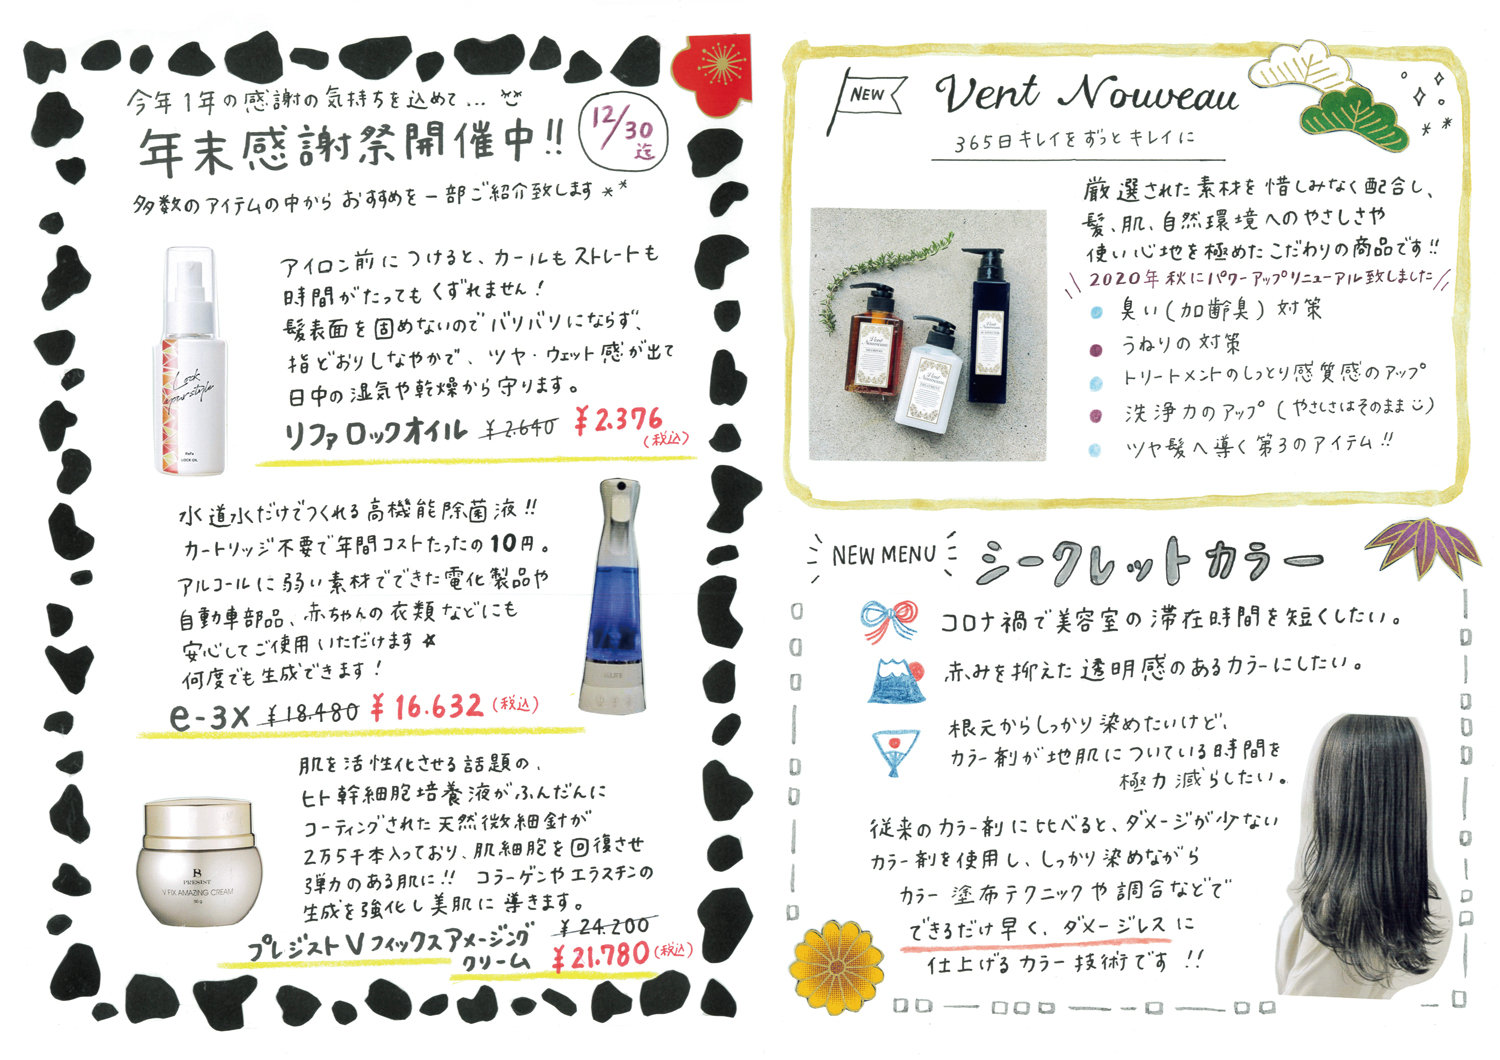 今年1年の感謝の気持ちを込めて...
年末感謝祭開催中!!
12/30迄
多数のアイテムの中からおすすめを一部ご紹介致します**
アイロン前につけると、カールもストレートも
時間がたってもくずれません!
髪表面を固めないのでバリバリにならず、
指どおりしなやかで、ツヤ・ウェット感が出て
日中の湿気や乾燥から守ります。
リファロックオイル ¥2.640 ¥2.376(税込)
Lock
ReFa
LOCK OIL
水道水だけでつくれる高機能除菌液!!
カートリッジ不要で年間コストたったの10円。
アルコールに弱い素材でできた電化製品や
自動車部品、赤ちゃんの衣類などにも
安心してご使用いただけます☆
何度でも生成できます!
e-3x ¥18.480 ¥16.632(税込)
肌を活性化させる話題の、
ヒト幹細胞培養液がふんだんに
コーティングされた天然微細針が
2万5千本入っており、肌細胞を回復させ
弾力のある肌に!! コラーゲンやエラスチンの
生成を強化し美肌に導きます。
プレジストVフィックスアメージング
クリーム
¥24.200
¥21.780(税込)
PRESIST
V FIX AMAZING CREAM
NEW
Vent Nouveau
365日キレイをずっとキレイに
厳選された素材を惜しみなく配合し、
髪、肌、自然環境へのやさしさや
使い心地を極めたこだわりの商品です!!
\\2020年秋にパワーアップリニューアル致しました//
臭い(加齢臭)対策
うねりの対策
トリートメントのしっとり感質感のアップ
洗浄力のアップ(やさしさはそのまま)
ツヤ髪へ導く第3のアイテム!!
Vent
Nouveau
Vent
Nouveau
Vent
Nouveau
NEW MENU
シークレットカラー
コロナ禍で美容室の滞在時間を短くしたい。
赤みを抑えた透明感のあるカラーにしたい。
根元からしっかり染めたいけど、
カラー剤が地肌についている時間を
極力減らしたい。
従来のカラー剤に比べると、ダメージが少ない
カラー剤を使用し、しっかり染めながら
カラー塗布テクニックや調合などで
できるだけ早く、ダメージレスに
仕上げるカラー技術です!!